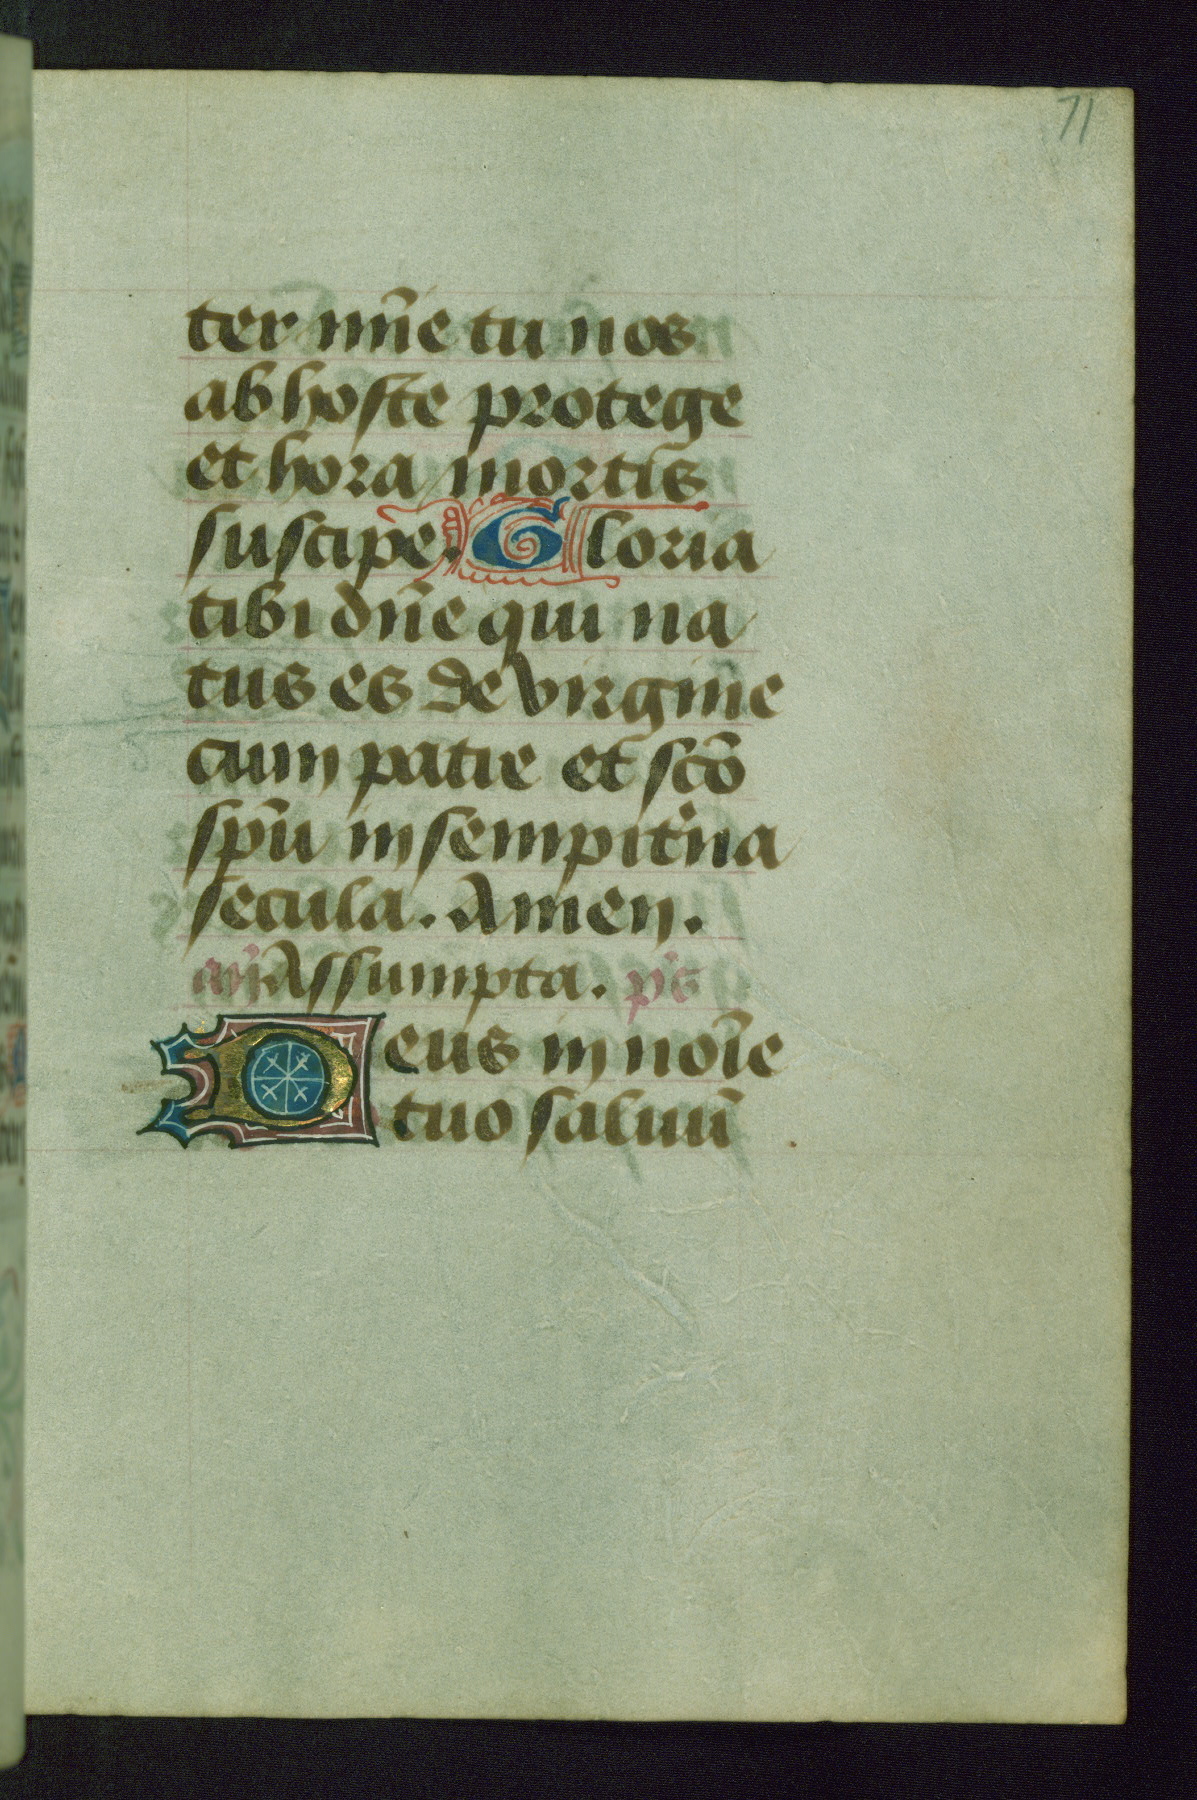 71
ter mr̄ie tu nos
ab hoste protege
et hora mortis
suscipe. Gloria
tibi dn̄e qui na
tus es de virgine
cum patre et scō
spū in sempit̾na
secula. Amen.
an̄ Assumpta. ps̄
Deus in noīe
tuo saluū